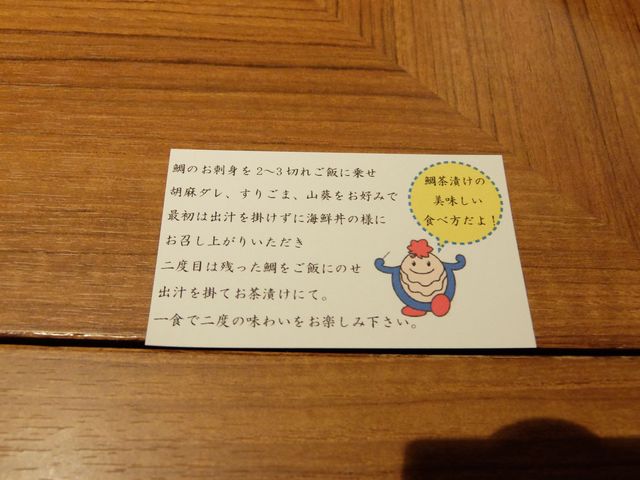 鯛のお刺身を2～3切れご飯に乗せ
胡麻ダレ、すりごま、山葵をお好みで
最初は出汁を掛けずに海鮮丼の様に
お召し上がりいただき
二度目は残った鯛をご飯にのせ
出汁を掛てお茶漬けにて。
一食で二度の味わいをお楽しみ下さい。
鯛茶漬けの
美味しい
食べ方だよ！